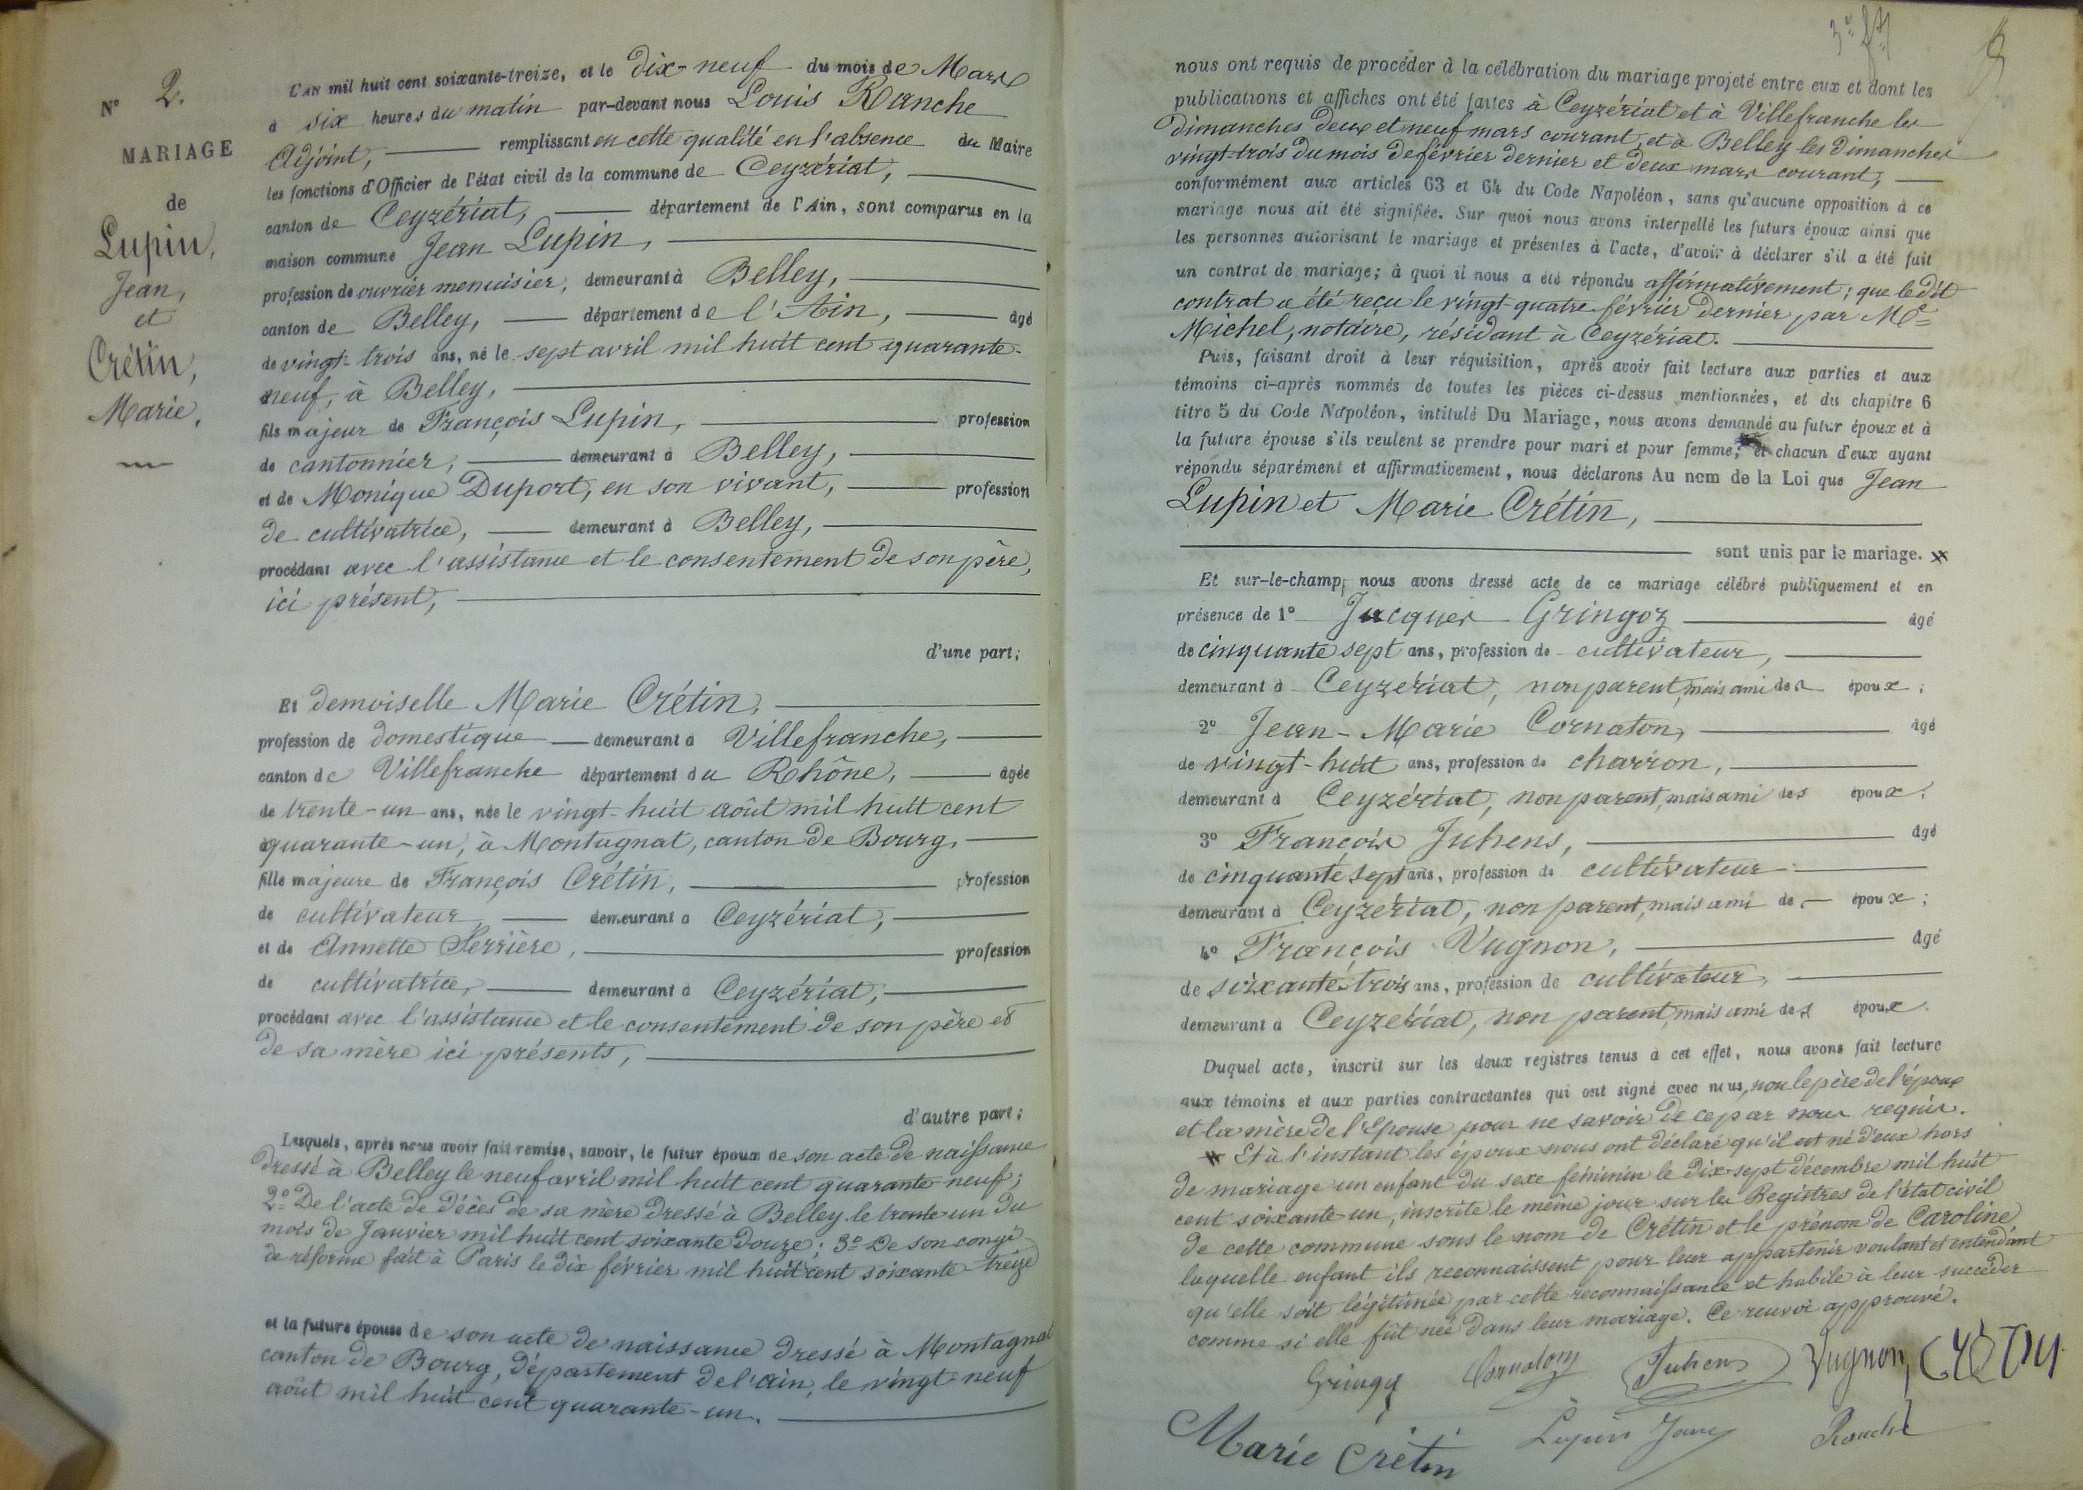 N° 2.
MARIAGE
de
Lupin,
Jean,
et
Crétin,
Marie.
L'AN mil huit cent soixante-treize, et le dix-neuf du mois de Mars
à six heures du matin par-devant nous Louis Ranche
Adjoint, remplissant en cette qualité en l'absence du Maire
les fonctions d'Officier de l'état civil de la commune de Ceyzériat,
canton de Ceyzériat, département de l'Ain, sont comparus en la
maison commune Jean Lupin,
profession de ouvrier menuisier, demeurant à Belley,
canton de Belley, département de l'Ain, âgé
de vingt-trois ans, né le sept avril mil huit cent quarante-
neuf, à Belley,
fils majeur de François Lupin, profession
de cantonnier, demeurant à Belley,
et de Monique Duport, en son vivant, profession
de cultivatrice, demeurant à Belley,
procédant avec l'assistance et le consentement de son père,
ici présent,
d'une part;
Et demoiselle Marie Crétin,
profession de domestique demeurant à Villefranche,
canton de Villefranche département du Rhône, âgée
de trente-un ans, née le vingt-huit août mil huit cent
quarante-un, à Montagnat, canton de Bourg,
fille majeure de François Crétin, profession
de cultivateur demeurant à Ceyzériat,
et de Annette Serrière, profession
de cultivatrice, demeurant à Ceyzériat,
procédant avec l'assistance et le consentement de son père et
de sa mère ici présents,
d'autre part;
Lesquels, après nous avoir fait remise, savoir, le futur époux de son acte de naissance
dressé à Belley le neuf avril mil huit cent quarante-neuf;
2° De l'acte de décès de sa mère dressé à Belley le trente un du
mois de Janvier mil huit cent soixante douze; 3° De son congé
de réforme fait à Paris le dix février mil huit cent soixante treize
et la future épouse de son acte de naissance dressé à Montagnat
canton de Bourg, département de l'ain, le vingt-neuf
août mil huit cent quarante-un.
nous ont requis de procéder à la célébration du mariage projeté entre eux et dont les
publications et affiches ont été faites à Ceyzériat et à Villefranche les
dimanches deux et neuf mars courant, et à Belley les dimanches
vingt-trois du mois de février dernier et deux mars courant,
conformément aux articles 63 et 64 du Code Napoléon, sans qu'aucune opposition à ce
mariage nous ait été signifiée. Sur quoi nous avons interpellé les futurs époux ainsi que
les personnes autorisant le mariage et présentes à l'acte, d'avoir à déclarer s'il a été fait
un contrat de mariage; à quoi il nous a été répondu affirmativement; que le dit
contrat a été reçu le vingt quatre février dernier par Me
Michel, notaire, résidant à Ceyzériat.
Puis, faisant droit à leur réquisition, après avoir fait lecture aux parties et aux
témoins ci-après nommés de toutes les pièces ci-dessus mentionnées, et du chapitre 6
titre 5 du Code Napoléon, intitulé Du Mariage, nous avons demandé au futur époux et à
la future épouse s'ils veulent se prendre pour mari et pour femme; et chacun d'eux ayant
répondu séparément et affirmativement, nous déclarons Au nom de la Loi que Jean
Lupin et Marie Crétin,
sont unis par le mariage.
Et sur-le-champ, nous avons dressé acte de ce mariage célébré publiquement et en
présence de 1° Jacques Gringoz âgé
de cinquante sept ans, profession de cultivateur,
demeurant à Ceyzériat, non parent, mais ami des époux;
2° Jean-Marie Cornaton, âgé
de vingt-huit ans, profession de charron,
demeurant à Ceyzériat, non parent, mais ami des époux.
3° François Juhens, âgé
de cinquante sept ans, profession de cultivateur
demeurant à Ceyzériat, non parent, mais ami de époux;
4° François Vugnon, âgé
de soixante-trois ans, profession de cultivateur,
demeurant à Ceyzériat, non parent, mais ami des époux.
Duquel acte, inscrit sur les deux registres tenus à cet effet, nous avons fait lecture
aux témoins et aux parties contractantes qui ont signé avec nous, non le père de l'époux
et la mère de l'Epouse pour ne savoir de ce par nous requis.
Et à l'instant les époux nous ont déclaré qu'il est né d'eux hors
de mariage un enfant du sexe féminin le dix-sept décembre mil huit
cent soixante un, inscrite le même jour sur les Registres de l'état civil
de cette commune sous le nom de Crétin et le prénom de Caroline
laquelle enfant ils reconnaissent pour leur appartenir voulant et entendant
qu'elle soit légitimée par cette reconnaissance et habile à leur succéder
comme si elle fût née dans leur mariage. Ce renvoi approuvé.
Gringoz Cornaton Juhens Vugnon,
Marie Crétin Lupin Jean Ranche